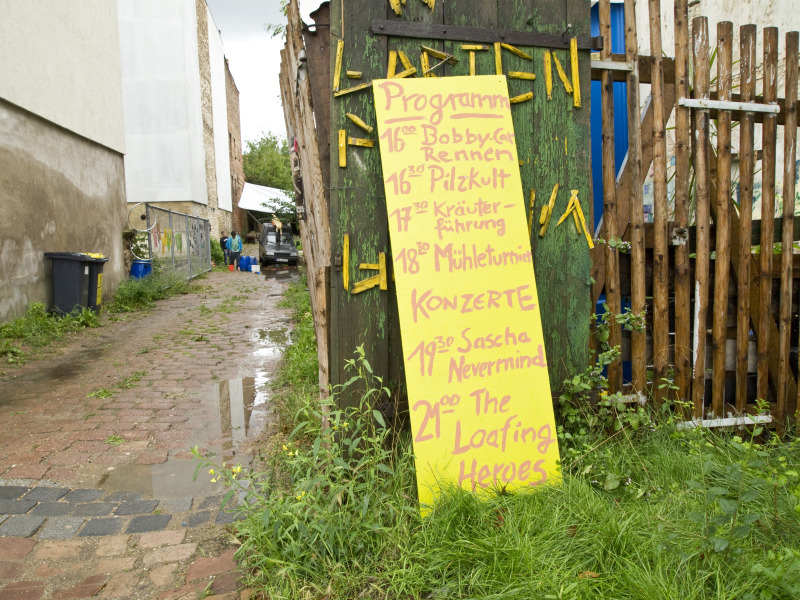 Programm
16⁰⁰ Bobby-Car
Rennen
16³⁰ Pilzkult
17³⁰ Kräuter-
führung
18³⁰ Mühleturnier
KONZERTE
19³⁰ Sascha
Nevermind
21⁰⁰ The
Loafing
Heroes